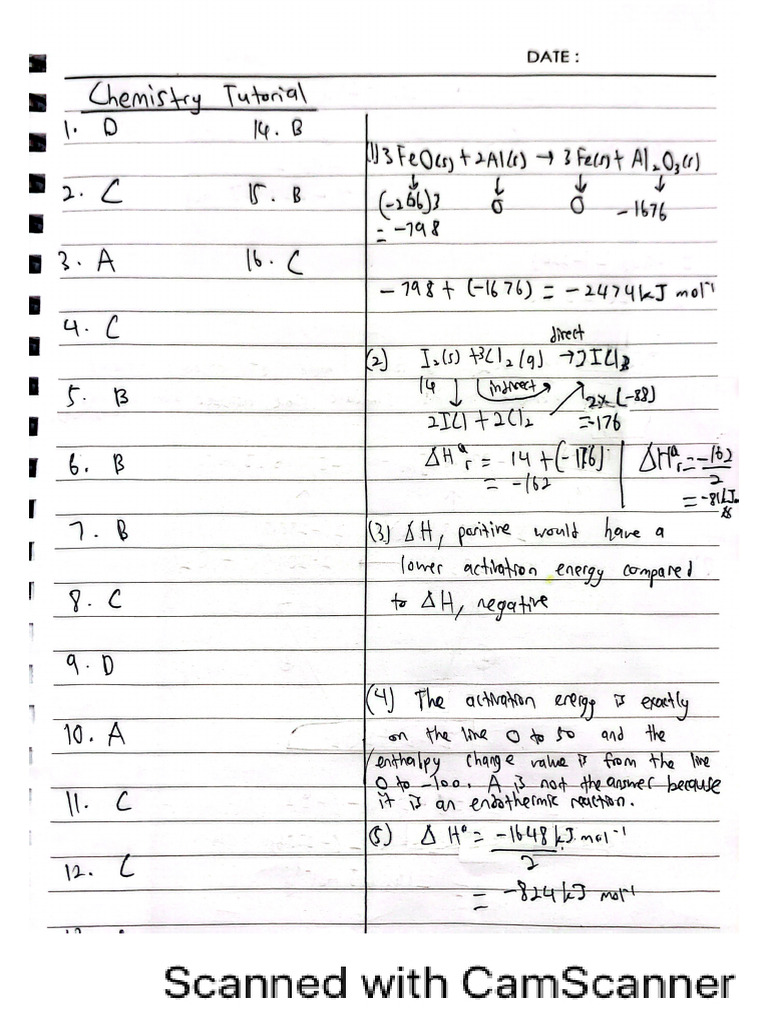 DATE :
Chemistry Tutorial
1. D
14. B
2. C
15. B
3. A
16. C
4. C
5. B
6. B
7. B
8. C
9. D
10. A
11. C
12. C
(1) 3FeO(s) + 2Al(s) → 3Fe(s) + Al₂O₃(s)
↓ ↓ ↓ ↓
(-266)3 0 0 -1676
= -798
- 798 + (-1676) = -2474 kJ mol⁻¹
direct
(2) I₂(s) + 3Cl₂(g) → 2ICl₃
14 ↓ indirect 2x (-88)
2ICl + 2Cl₂ = -176
ΔHᶿr = 14 + (-176) | ΔHᶿr = -162/2
= -162 = -81kJ
(3) ΔH, positive would have a
lower activation energy compared
to ΔH, negative
(4) The activation energy is exactly
on the line 0 to 50 and the
enthalpy change value is from the line
0 to -100. A is not the answer because
it is an endothermic reaction.
(5) ΔHᶿ = -1648 kJ mol⁻¹
2
= -824 kJ mol⁻¹
Scanned with CamScanner